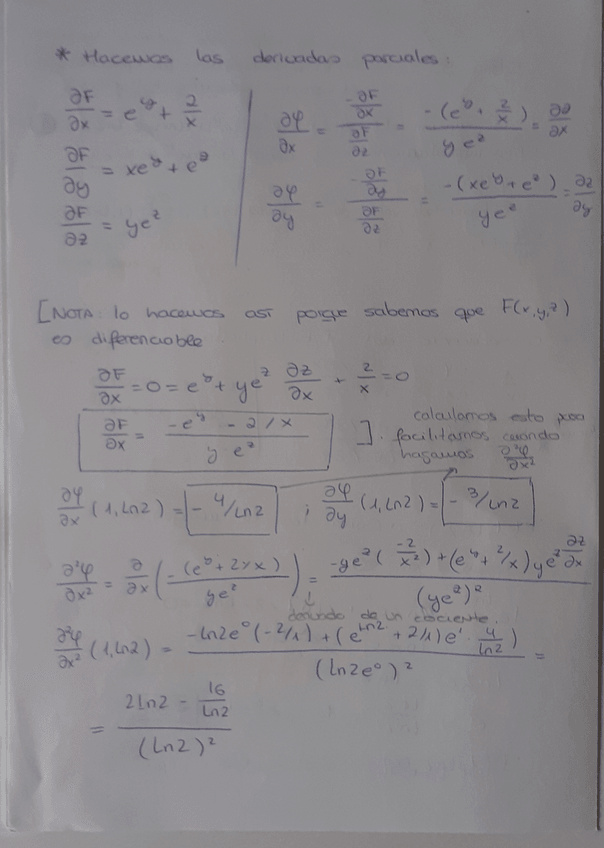 * Hacemos las derivadas parciales:
∂F/∂x = e^y + 2/x
∂F/∂y = xe^y + e^z
∂F/∂z = ye^z
∂φ/∂x = (-∂F/∂x)/(∂F/∂z) = -(e^y + 2/x)/(y e^z) = ∂z/∂x
∂φ/∂y = (-∂F/∂y)/(∂F/∂z) = -(xe^y + e^z)/(ye^z) = ∂z/∂y
[NOTA: lo hacemos así porqe sabemos que F(x,y,z)
es diferenciable
∂F/∂x = 0 = e^y + ye^z ∂z/∂x + 2/x = 0
∂F/∂x = (-e^y - 2/x)/(y e^z)
]. calculamos esto para
facilitarnos cuando
hagamos ∂²φ/∂x²
∂φ/∂x (1, Ln2) = - 4/Ln2 ; ∂φ/∂y (1, Ln2) = - 3/Ln2
∂²φ/∂x² = ∂/∂x (-(e^y + 2/x)/(ye^z)) = (-ye^z (-2/x²) + (e^y + 2/x) ye^z ∂z/∂x)/(ye^z)²
↓ derivada de un cociente.
∂²φ/∂x² (1, Ln2) = (-Ln2e^0 (-2/1) + (e^Ln2 + 2/1) e^1 · 4/Ln2)/(Ln2e^0)² =
= (2Ln2 - 16/Ln2)/(Ln2)²